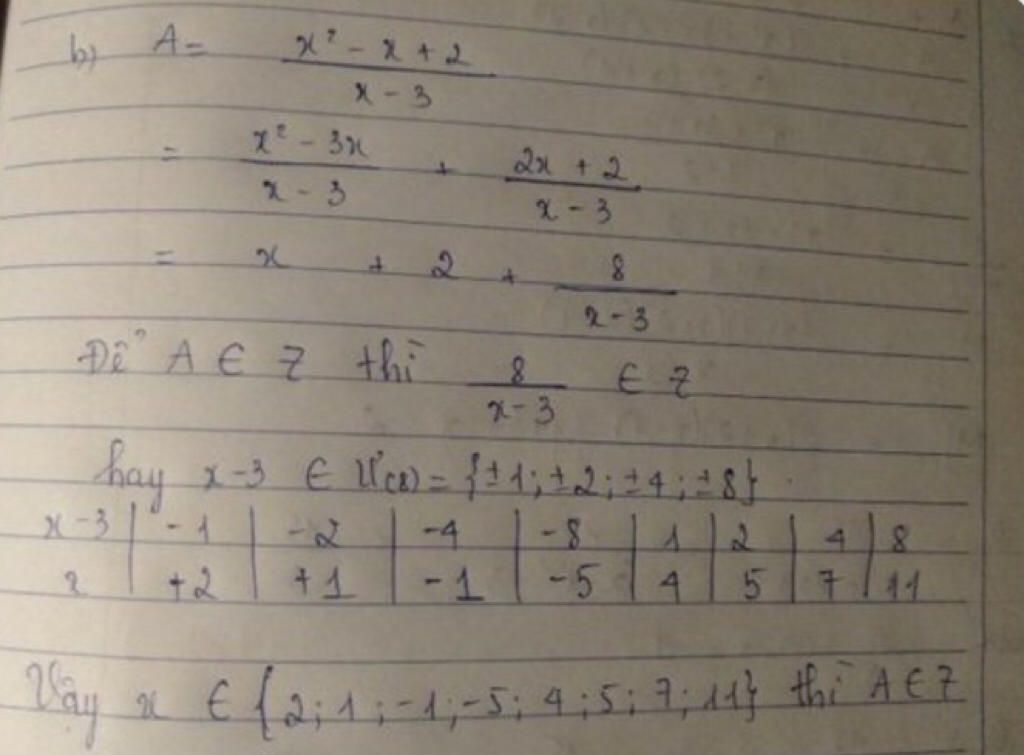 b) A = (x² - x + 2)/(x - 3)
= (x² - 3x)/(x - 3) + (2x + 2)/(x - 3)
= x + 2 + 8/(x - 3)
Để A ∈ Z thì 8/(x - 3) ∈ Z
hay x - 3 ∈ Ư(8) = {±1; ±2; ±4; ±8}.
x - 3 | -1 | -2 | -4 | -8 | 1 | 2 | 4 | 8
x | +2 | +1 | -1 | -5 | 4 | 5 | 7 | 11
Vậy x ∈ {2; 1; -1; -5; 4; 5; 7; 11} thì A ∈ Z